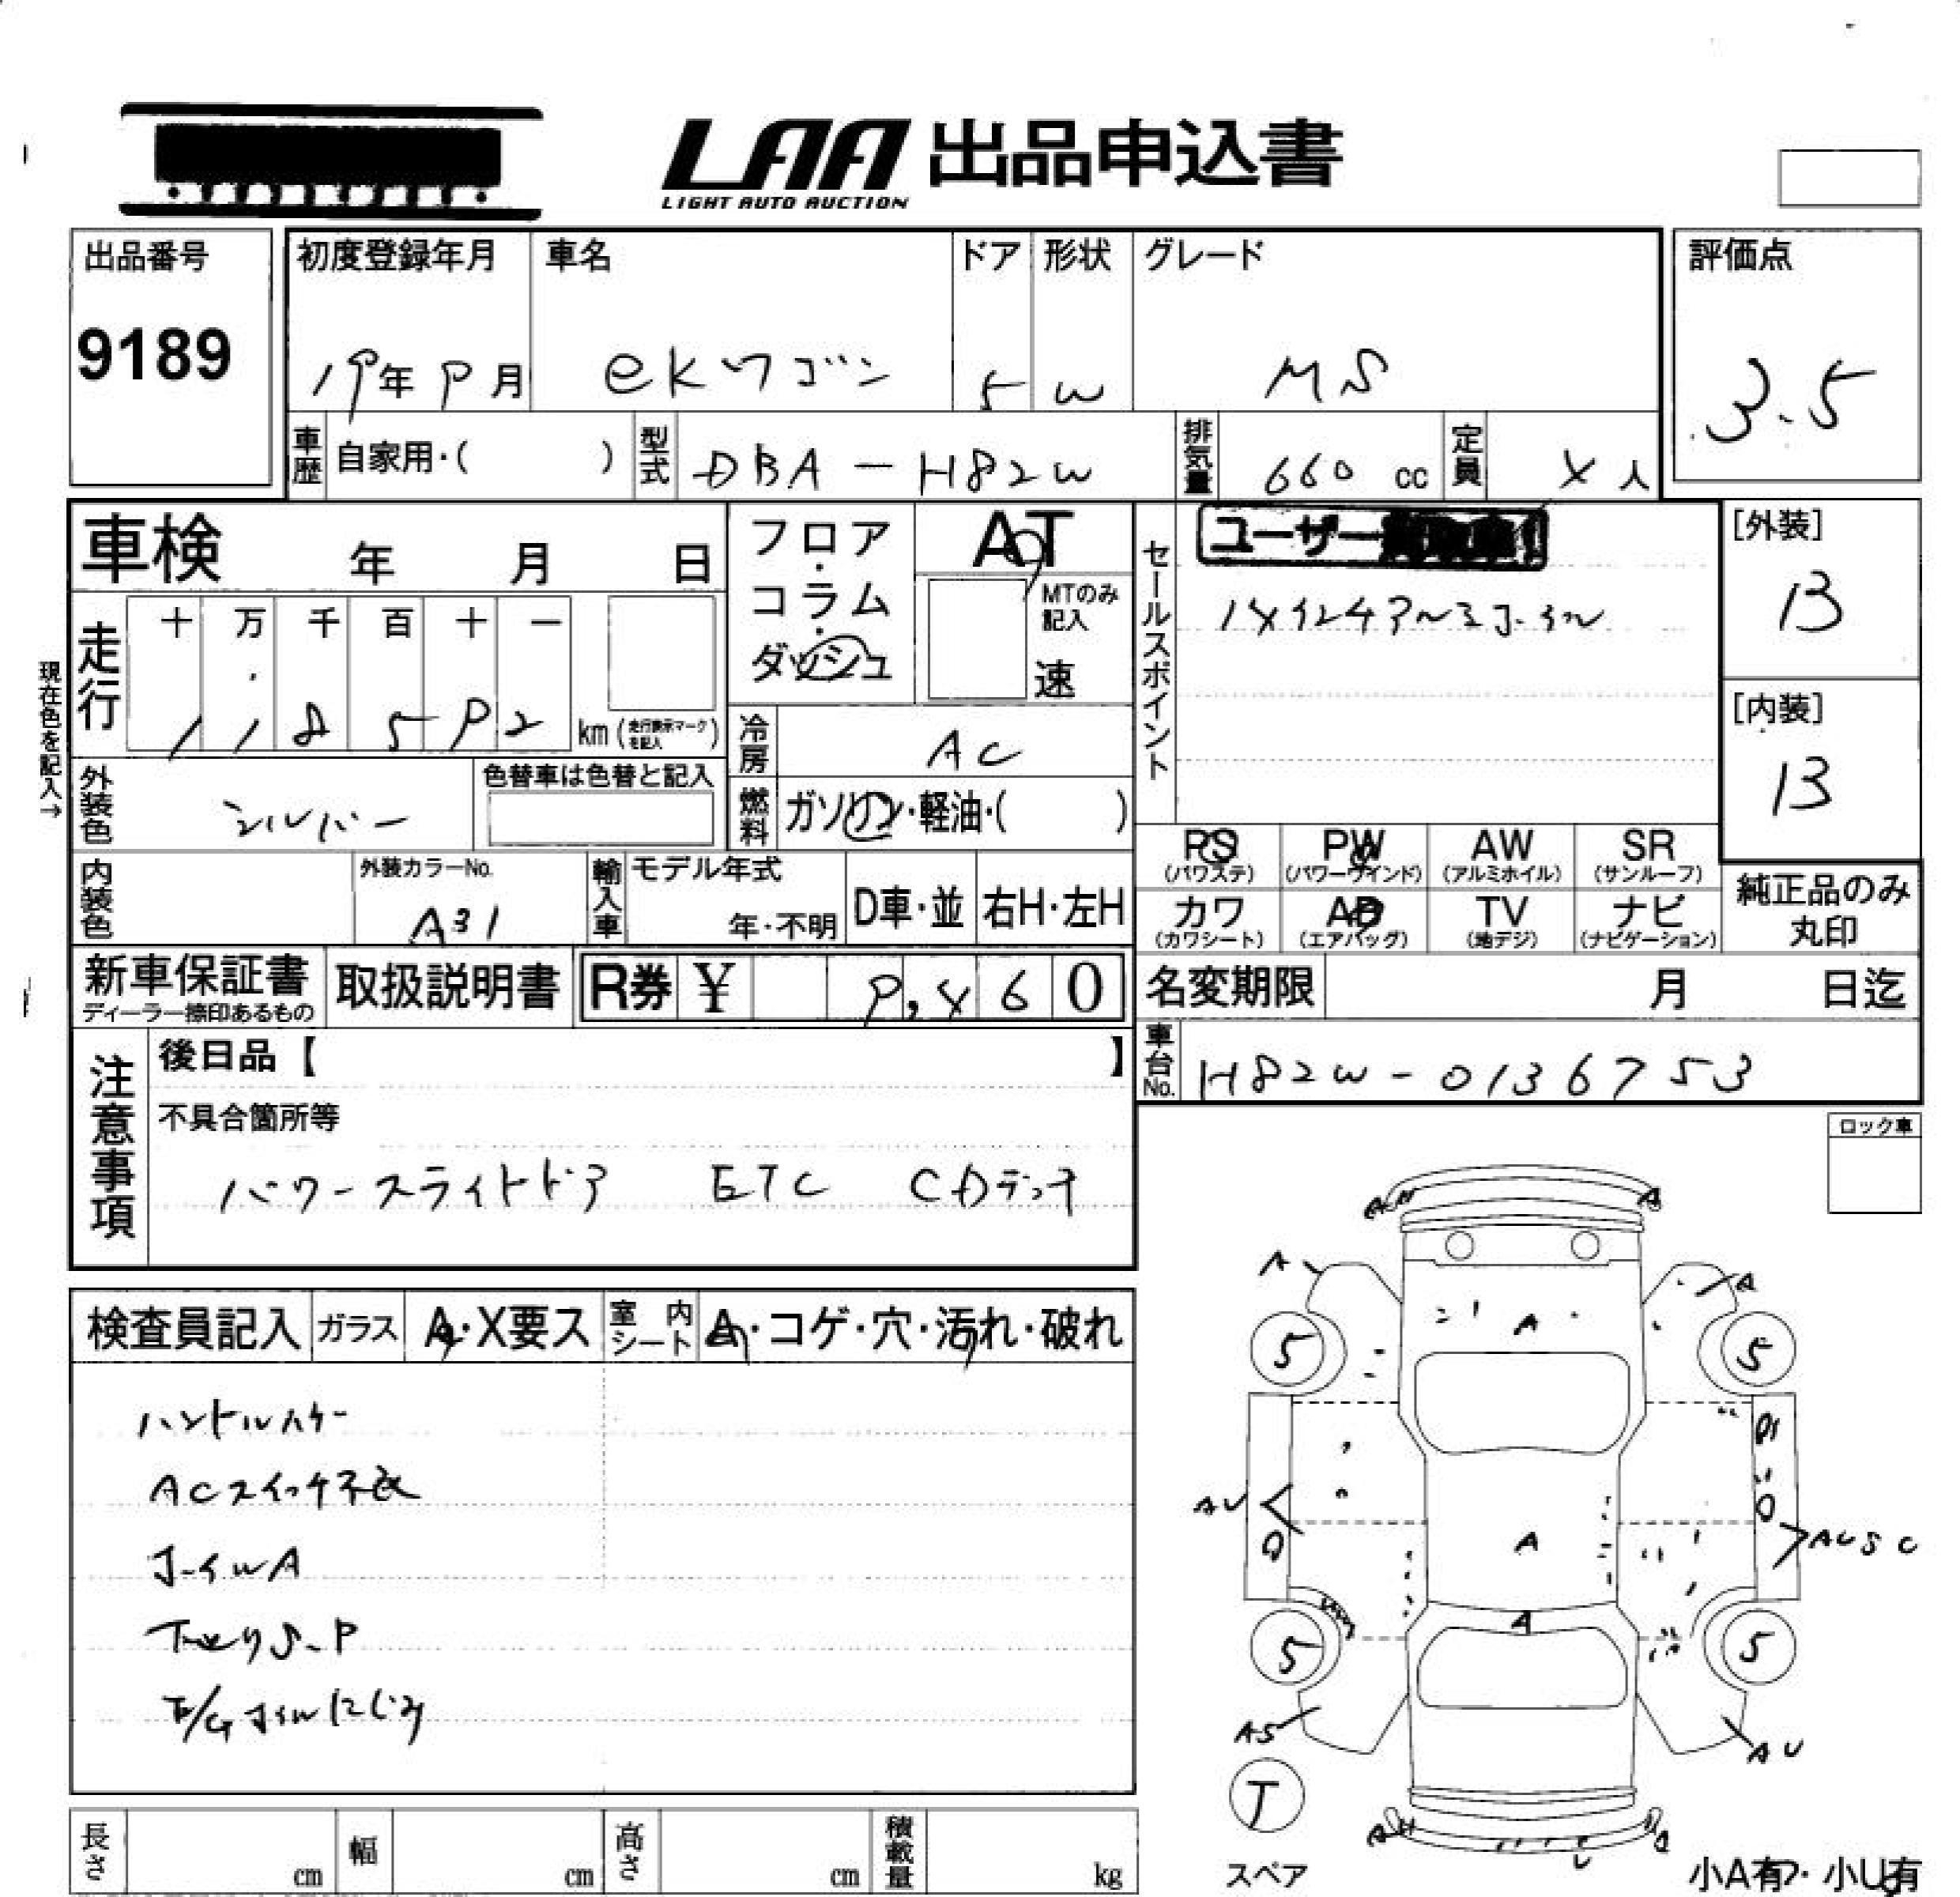 LAA 出品申込書
LIGHT AUTO AUCTION
出品番号 初度登録年月 車名 ドア 形状 グレード 評価点
9189 19年 9月 ekワゴン 5 W MS 3.5
車歴 自家用・( ) 型式 DBA-H82W 排気量 660 cc 定員 4 人
車検 年 月 日 フロア・コラム・ダッシュ AT
MTのみ記入 速
セールスポイント ユーザー
[外装] 13
[内装] 13
現在色を記入→
走行 十 万 千 百 十 一
1 1 8 5 9 2 km (走行表示マークを記入)
冷房 AC
外装色 シルバー 色替車は色替と記入
燃料 ガソリン・軽油・( )
内装色 外装カラーNo. A31 輸入車 モデル年式 年・不明 D車・並 右H・左H
PS (パワステ) PW (パワーウインド) AW (アルミホイル) SR (サンルーフ)
カワ (カワシート) AB (エアバッグ) TV (地デジ) ナビ (ナビゲーション)
純正品のみ丸印
新車保証書 ディーラー捺印あるもの 取扱説明書 R券 ¥ 9,460
名変期限 月 日迄
車台No. H82W-0136753
注意事項 後日品【 】
不具合箇所等
パワースライドドア ETC CDデッキ
ロック車
検査員記入 ガラス A・X要ス 室内シート A・コゲ・穴・汚れ・破れ
ハンドルハゲ
ACスイッチ不良
ホイルA
下廻りS、P
E/Gオイルにじみ
A A
A A
A
5 5
AU AUSC
A
A
5 5
AS AU
T
スペア
A U
小A有・小U有
長さ cm 幅 cm 高さ cm 積載量 kg